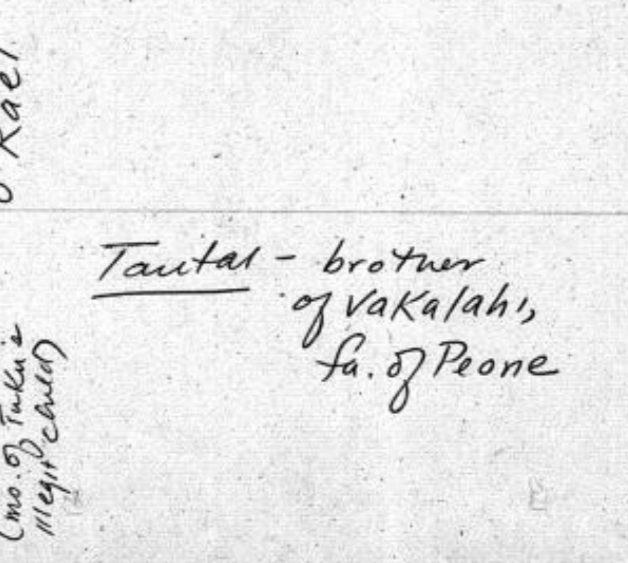 Kael.
Tautal - brother
of Vakalahi,
fa. of Peone
(mo. of Tuku's
illegit child)